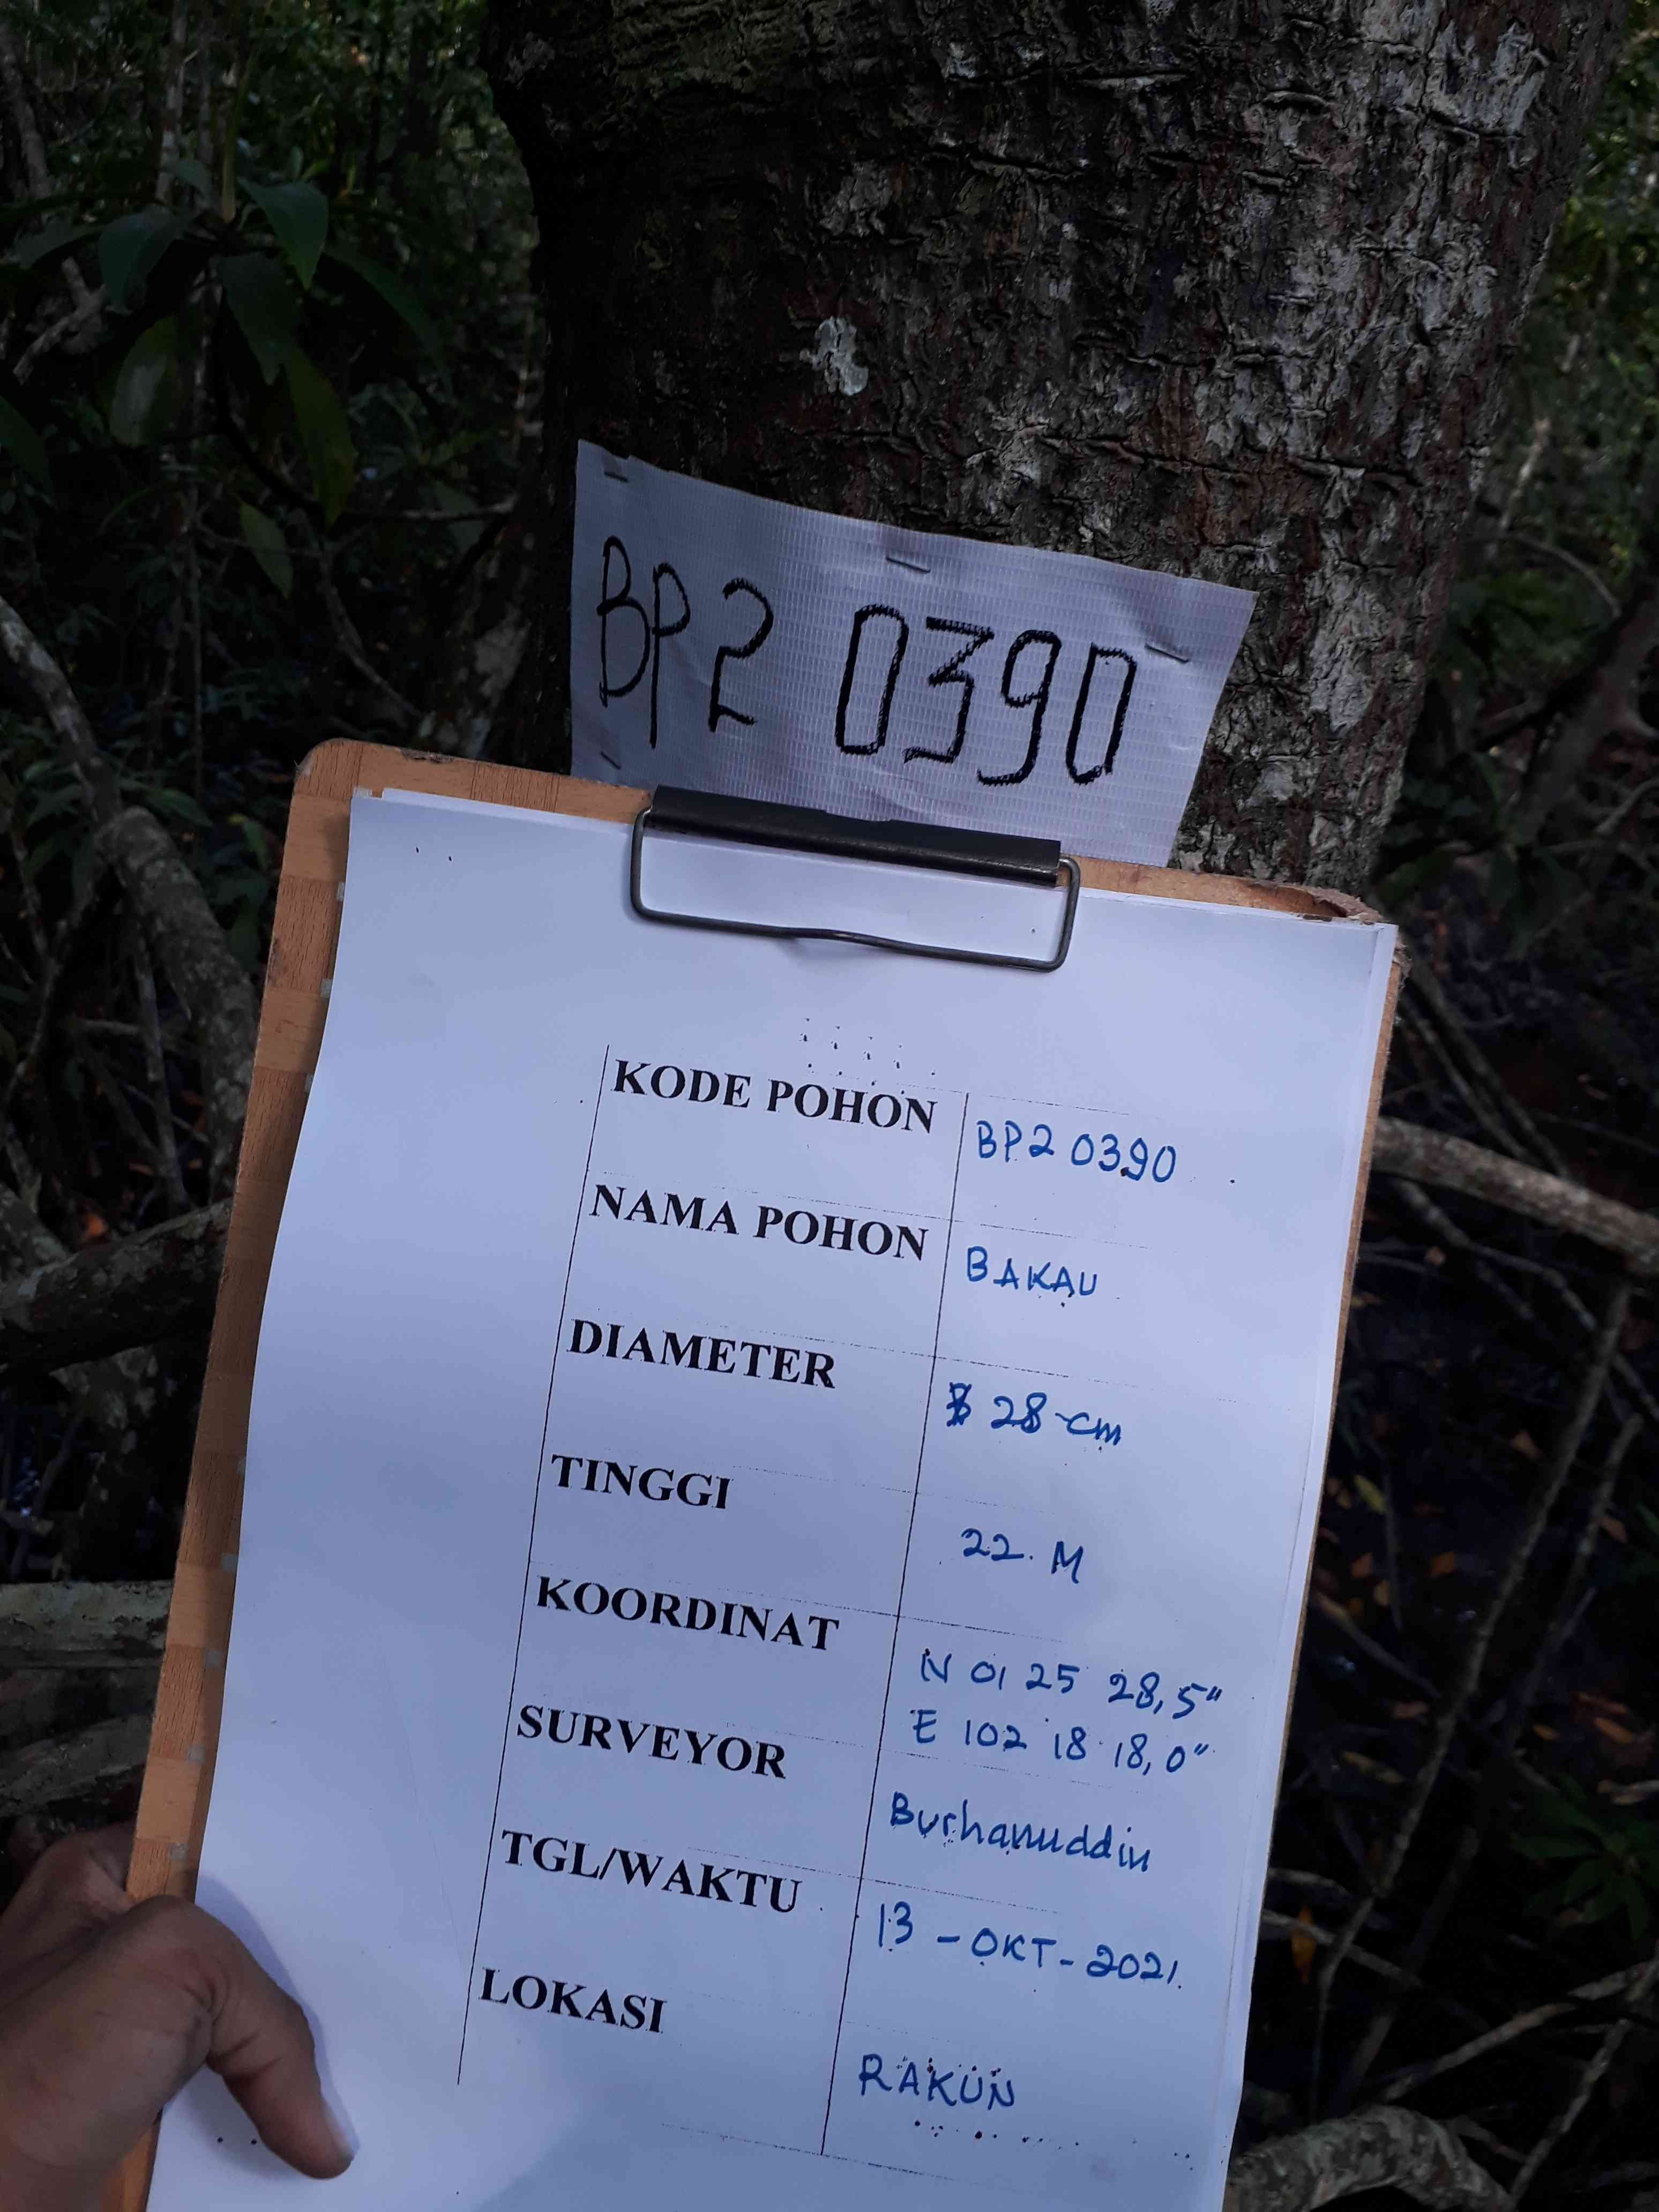 BP2 0390
KODE POHON BP2 0390
NAMA POHON BAKAU
DIAMETER 28 cm
TINGGI 22. M
KOORDINAT N 01 25 28,5"
E 102 18 18,0"
SURVEYOR Burhanuddin
TGL/WAKTU 13 - OKT - 2021.
LOKASI RAKUN